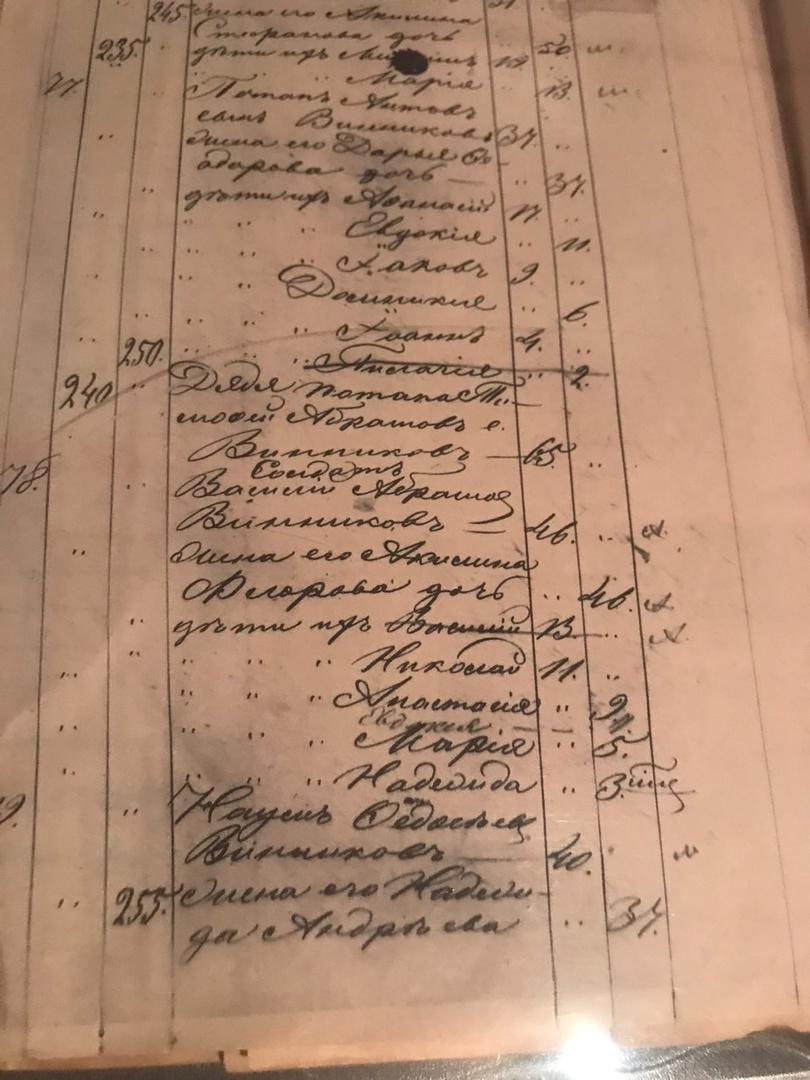 245. жена его Акилина
Стефанова дочь 50 м
235. дѣти ихъ 19
" " Марія 13 м
77. Потапъ Антовъ
сынъ Винниковъ 37. "
" жена его Дарья Ѳе-
одорова дочь — " 37
" дѣти ихъ Афанасій 17. "
" " " " Евдокія " 11.
" " " " Іаковъ 9. "
" " " Домникія " 6.
" " " " Іоаннъ 4. "
250. " " " Пелагія " 2.
240 " Дядя Потапа Ти-
мофей Абрамовъ с.
Винниковъ — 65 "
Солдатъ
78. " Василій Абрамов
Винниковъ — 46. "
" жена его Акилина
Флорова дочь " 46.
" дѣти ихъ Василій 13 "
" " " " Николай 11. "
" " " Анастасія " 9
Евдокія — —
" " " " Марія " 5.
" " " " Надежда " 3.
9. " Наумъ Ѳедосѣев
Винниковъ — 40. " м
" 255. жена его Надеж-
да Андрѣева " 37.